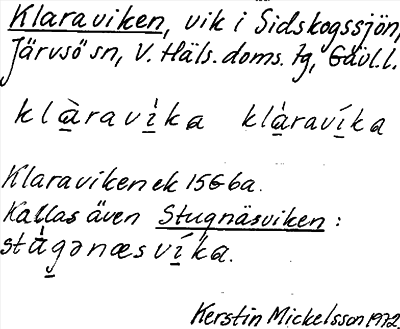 Klaraviken, vik i Sidskogssjön,
Järvsö sn, V. Häls. doms. tg, Gävl. l.
klàravìka klàravíka
Klaraviken ek 15G6a.
Kallas även Stugnäsviken:
stágənæsvíka.
Kerstin Mickelsson 1972.